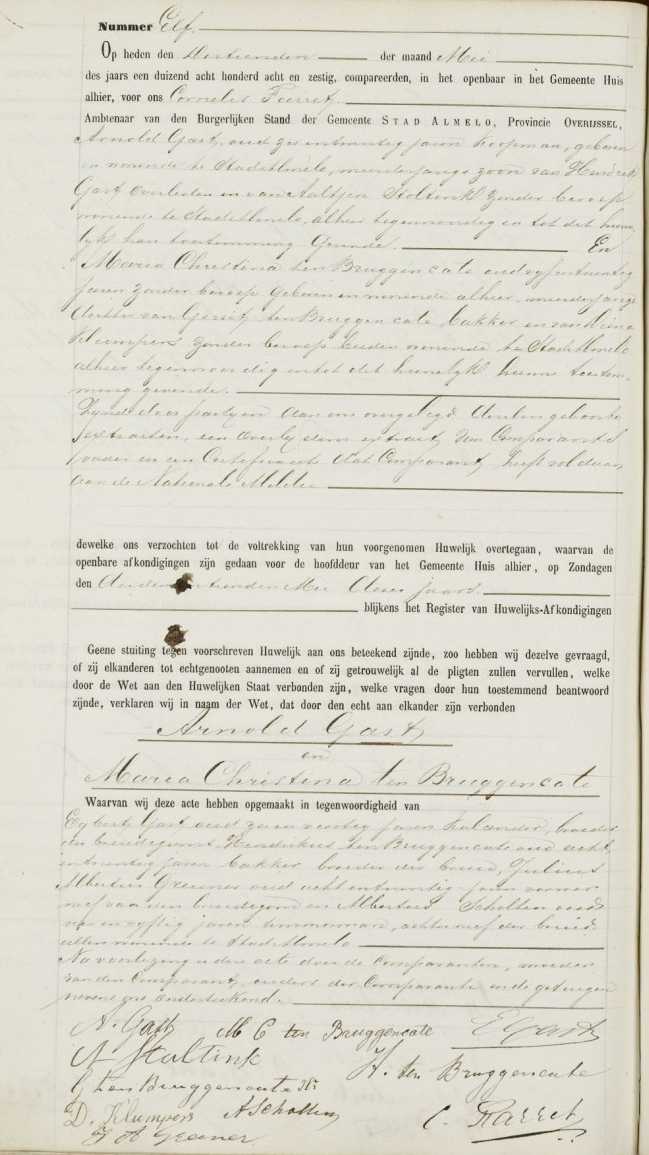 Nummer Elf.
Op heden den der maand Mei
des jaars een duizend acht honderd acht en zestig, compareerden, in het openbaar in het Gemeente Huis
alhier, voor ons Cornelis
Ambtenaar van den Burgerlijken Stand der Gemeente STAD ALMELO, Provincie OVERIJSSEL,
Arnold Gast, oud zes en twintig jaren Koopman, geboren
en wonende te Stad Almelo, meerderjarige zoon van
Gast overleden en van Aaltjen Stoltink zonder beroep
wonende te Stad Almelo, alhier tegenwoordig en tot dit huwe
lijk hare toestemming gevende. En
Maria Christina ten Bruggencate oud vyf en twintig
jaren zonder beroep geboren en wonende alhier, meerderjarige
dochter van Gerrit ten Bruggencate, bakker en van
Klumpers zonder beroep beiden wonende te Stad Almelo
alhier tegenwoordig en tot dit huwelyk hunne toestem-
ming gevende.
Zynde door partyen aan ons overgelegd geboorte
extracten, een overlydens extract van Comparants
vader en een Certificaat dat Comparant heeft voldaan
aan de Nationale Militie
dewelke ons verzochten tot de voltrekking van hun voorgenomen Huwelijk overtegaan, waarvan de
openbare afkondigingen zijn gedaan voor de hoofddeur van het Gemeente Huis alhier, op Zondagen
den Mei dezes jaars.
blijkens het Register van Huwelijks-Afkondigingen
Geene stuiting tegen voorschreven Huwelijk aan ons beteekend zijnde, zoo hebben wij dezelve gevraagd,
of zij elkanderen tot echtgenooten aannemen en of zij getrouwelijk al de pligten zullen vervullen, welke
door de Wet aan den Huwelijken Staat verbonden zijn, welke vragen door hun toestemmend beantwoord
zijnde, verklaren wij in naam der Wet, dat door den echt aan elkander zijn verbonden
Arnold Gast
en
Maria Christina ten Bruggencate
Waarvan wij deze acte hebben opgemaakt in tegenwoordigheid van
Egbert Gast oud veertig jaren broeder
des bruidegoms Hendrikus ten Bruggencate oud acht
en twintig jaren bakker broeder der bruid, Julius
Albertus oud acht en twintig jaren
neef van den bruidegom en Albertus Scholten oud
en vyftig jaren timmerman, achterneef der bruid
allen wonende te Stad Almelo
Na voorlezing is deze acte door de Comparanten, moeder
van den Comparant, ouders der Comparante en de getuigen
nevens ons onderteekend.
A. Gast M C ten Bruggencate E Gast
A Stoltink H. ten Bruggencate
G ten Bruggencate
D. Klumpers A Scholten C.
J A